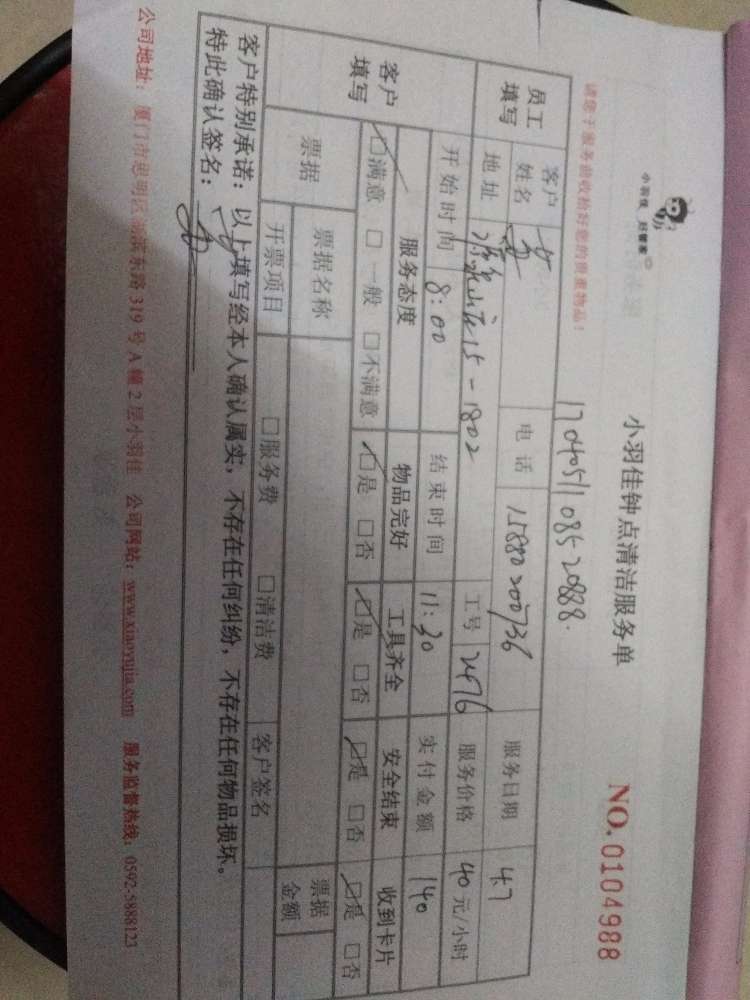 小羽佳 好管家
小羽佳钟点清洁服务单
NO. 0104988
1704051108520888.
请您于服务前收拾好您的贵重物品!
员工填写
客户姓名 电话 15880200736 服务日期 4.7
地址 15-1802 工号 2476 服务价格 40 元/小时
开始时间 8:00 结束时间 11:30 实付金额 140
客户填写
服务态度 物品完好 工具齐全 安全结束 收到卡片
☑满意 □一般 □不满意 ☑是 □否 ☑是 □否 ☑是 □否 ☑是 □否
票据 票据名称 票据金额
开票项目 □服务费 □清洁费 客户签名
客户特别承诺:以上填写经本人确认属实,不存在任何纠纷,不存在任何物品损坏。
特此确认签名:
公司地址:厦门市思明区湖滨东路 319 号 A 幢 2 层小羽佳 公司网站:www.xiaoyujia.com 服务监督热线:0592-5888123